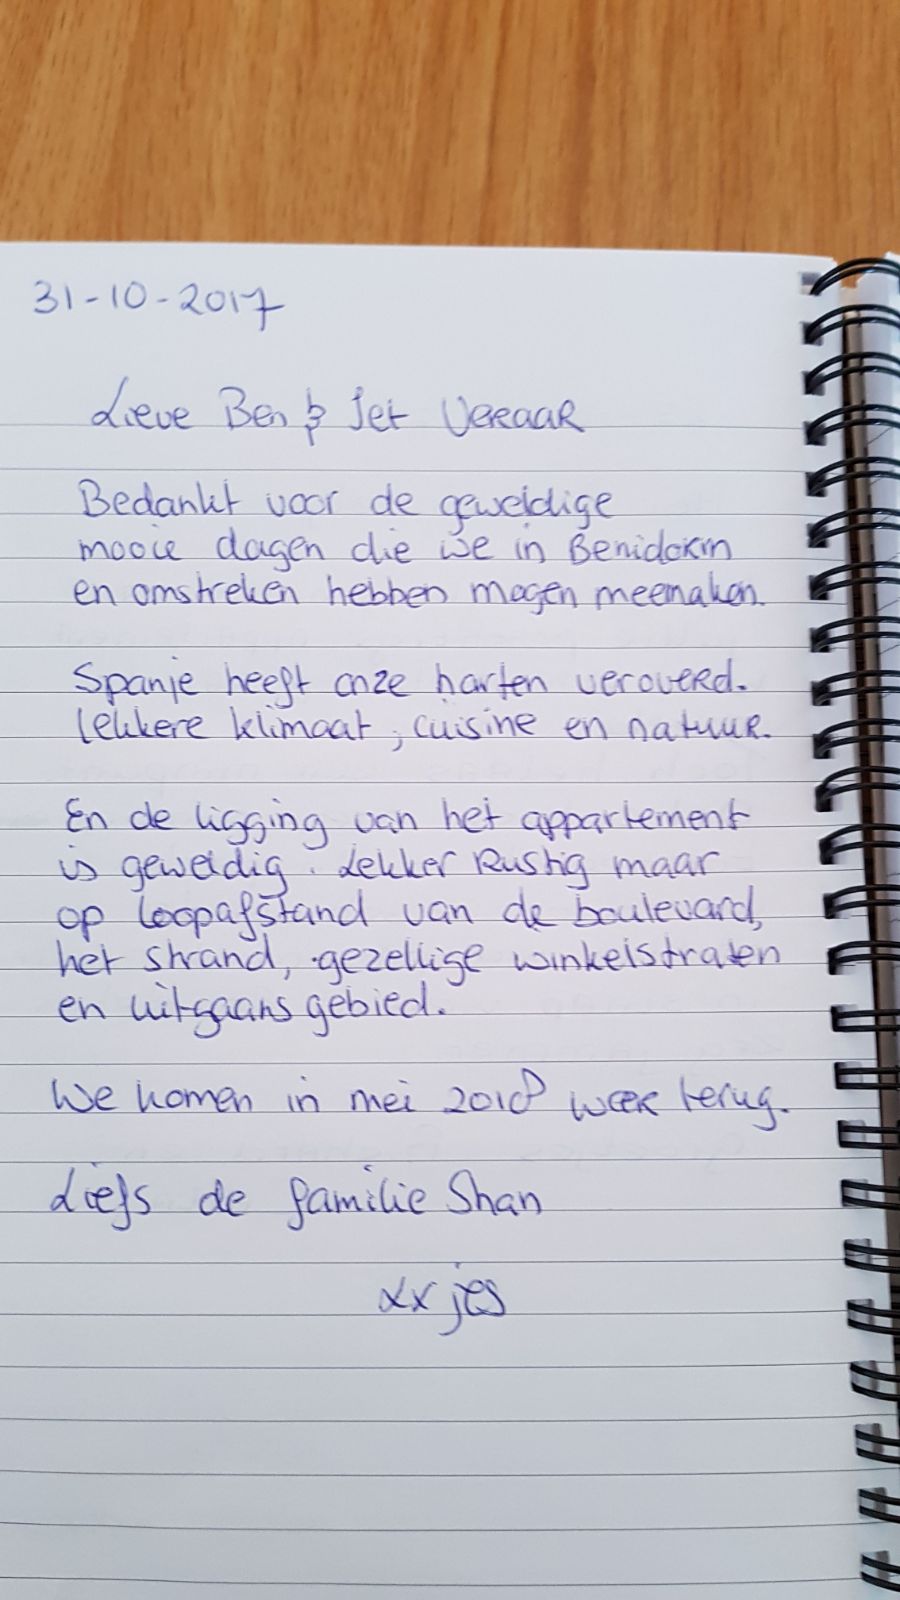 31-10-2017
Lieve Ben & Jet Veraar
Bedankt voor de geweldige
mooie dagen die we in Benidorm
en omstreken hebben mogen meemaken.
Spanje heeft onze harten veroverd.
lekkere klimaat, cuisine en natuur.
En de ligging van het appartement
is geweldig. Lekker Rustig maar
op loopafstand van de boulevard,
het strand, gezellige winkelstraten
en uitgaansgebied.
We komen in mei 2018 weer terug.
Liefs de familie Shan
xxjes